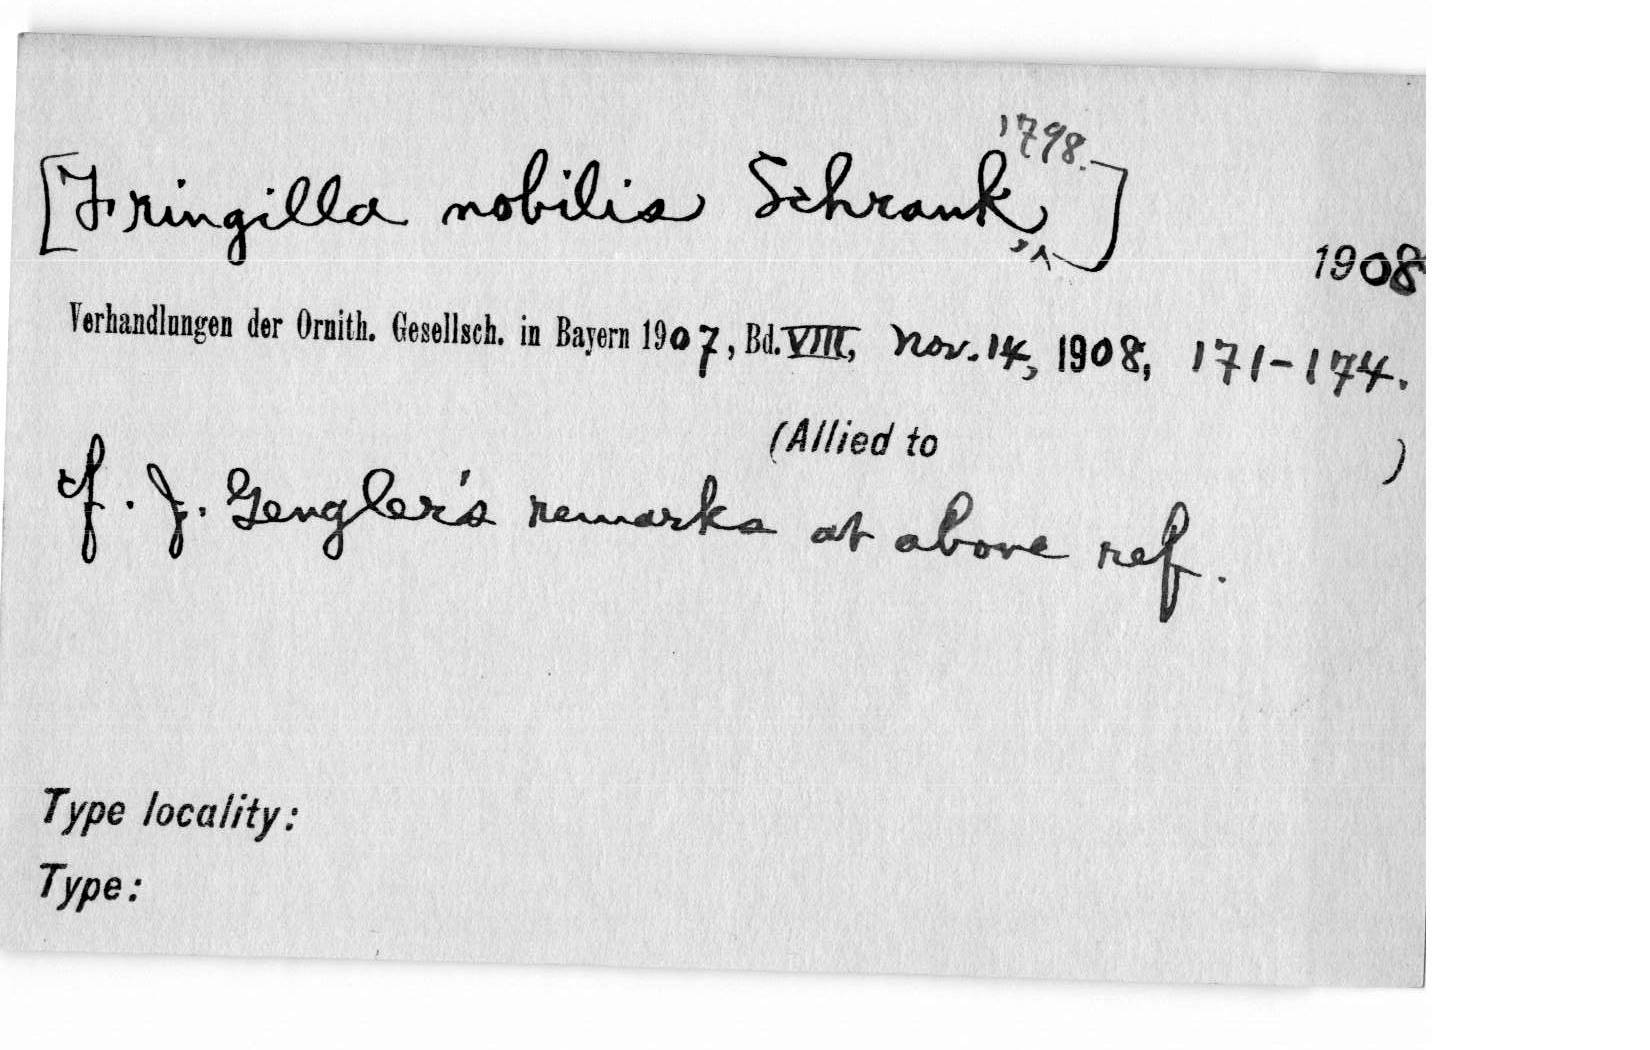 [Fringilla nobilis Schrank, 1798.]
1908
Verhandlungen der Ornith. Gesellsch. in Bayern 1907, Bd. VIII, Nov. 14, 1908, 171-174.
(Allied to )
cf. J. Gengler's remarks at above ref.
Type locality:
Type: